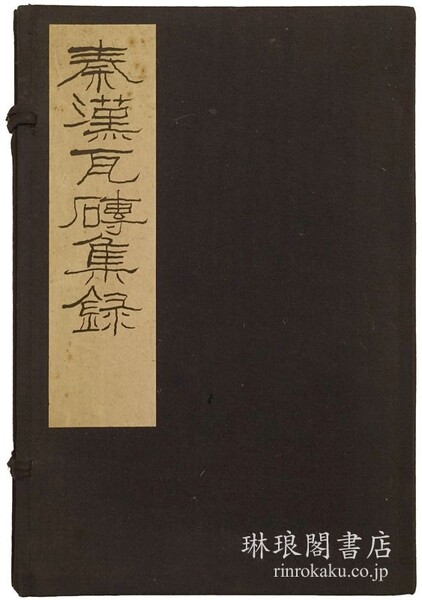 秦漢瓦磚集録
琳琅閣書店
rinrokaku.co.jp